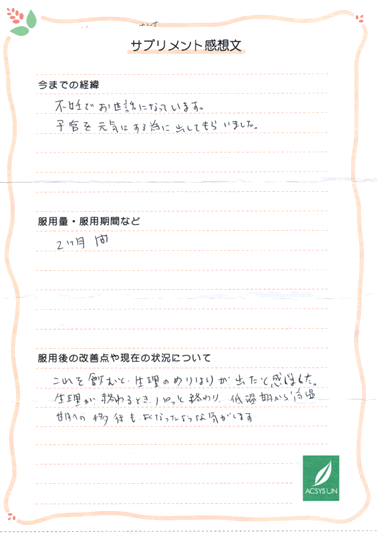 サプリメント感想文
今までの経緯
不妊でお世話になっています。
子宮を元気にする為に出してもらいました。
服用量・服用期間など
2ヶ月間
服用後の改善点や現在の状況について
これを飲むと、生理のめりはりが出たと感じました。
生理が終わるとき、パッと終わり、低温期から高温
期への移行もよくなったような気がします
ACSYSUN